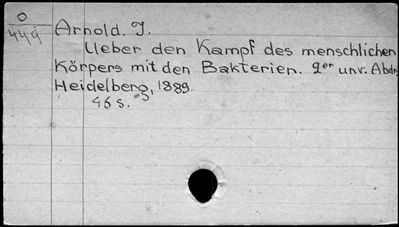 O
449
Arnold. J.
Ueber den Kampf des menschlichen
Körpers mit den Bakterien. 2er unv. Abdr.
Heidelberg, 1889.
46 s.